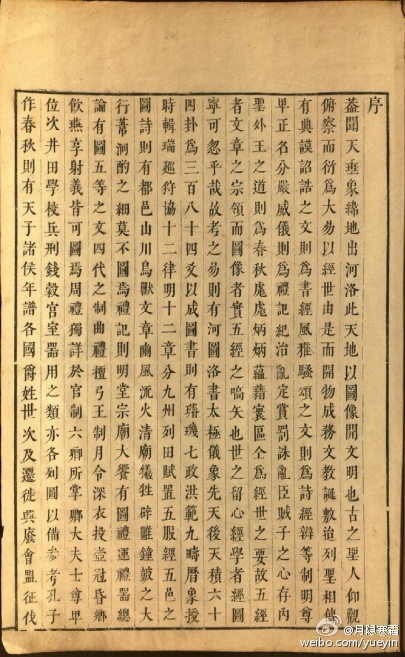 序
蓋聞天垂象緯地出河洛此天地以圖像開文明也古之聖人仰觀
俯察而衍爲大易以經世由是而開物成務文教誕敷迨列聖相傳
有典謨誥誡之文則爲書經風雅騷頌之文則爲詩經辯等制明尊
卑正名分嚴威儀則爲禮記紀治亂定賞罰誅亂臣賊子之心存内
聖外王之道則爲春秋麃麃炳炳蘊藉寰區全爲經世之要故五經
者文章之宗領而圖像者實五經之嚆矢也世之留心經學者經圖
寧可忽乎哉故考之易則有河圖洛書太極儀象先天後天積六十
四卦爲三百八十四爻以成圖書則有璿璣七政洪範九疇曆象授
時輯瑞巡狩協十二律明十二章分九州列田賦置五服經五邑之
圖詩則有都邑山川鳥獸文章豳風流火清廟犧牲辟雝鐘皷之大
行葦泂酌之細莫不圖焉禮記則明堂宗廟大饗有圖禮運禮器總
論有圖五等之文四代之制曲禮檀弓王制月令深衣投壺冠昏鄉
飲燕享射義皆可圖焉周禮獨詳於官制六卿所掌卿大夫士尊卑
位次井田學校兵刑錢穀官室器用之類亦各列圖以備參考孔子
作春秋則有天子諸侯年譜各國爵姓世次及遷徙與廢會盟征伐
@月隐寒霜
weibo.com/yueyin